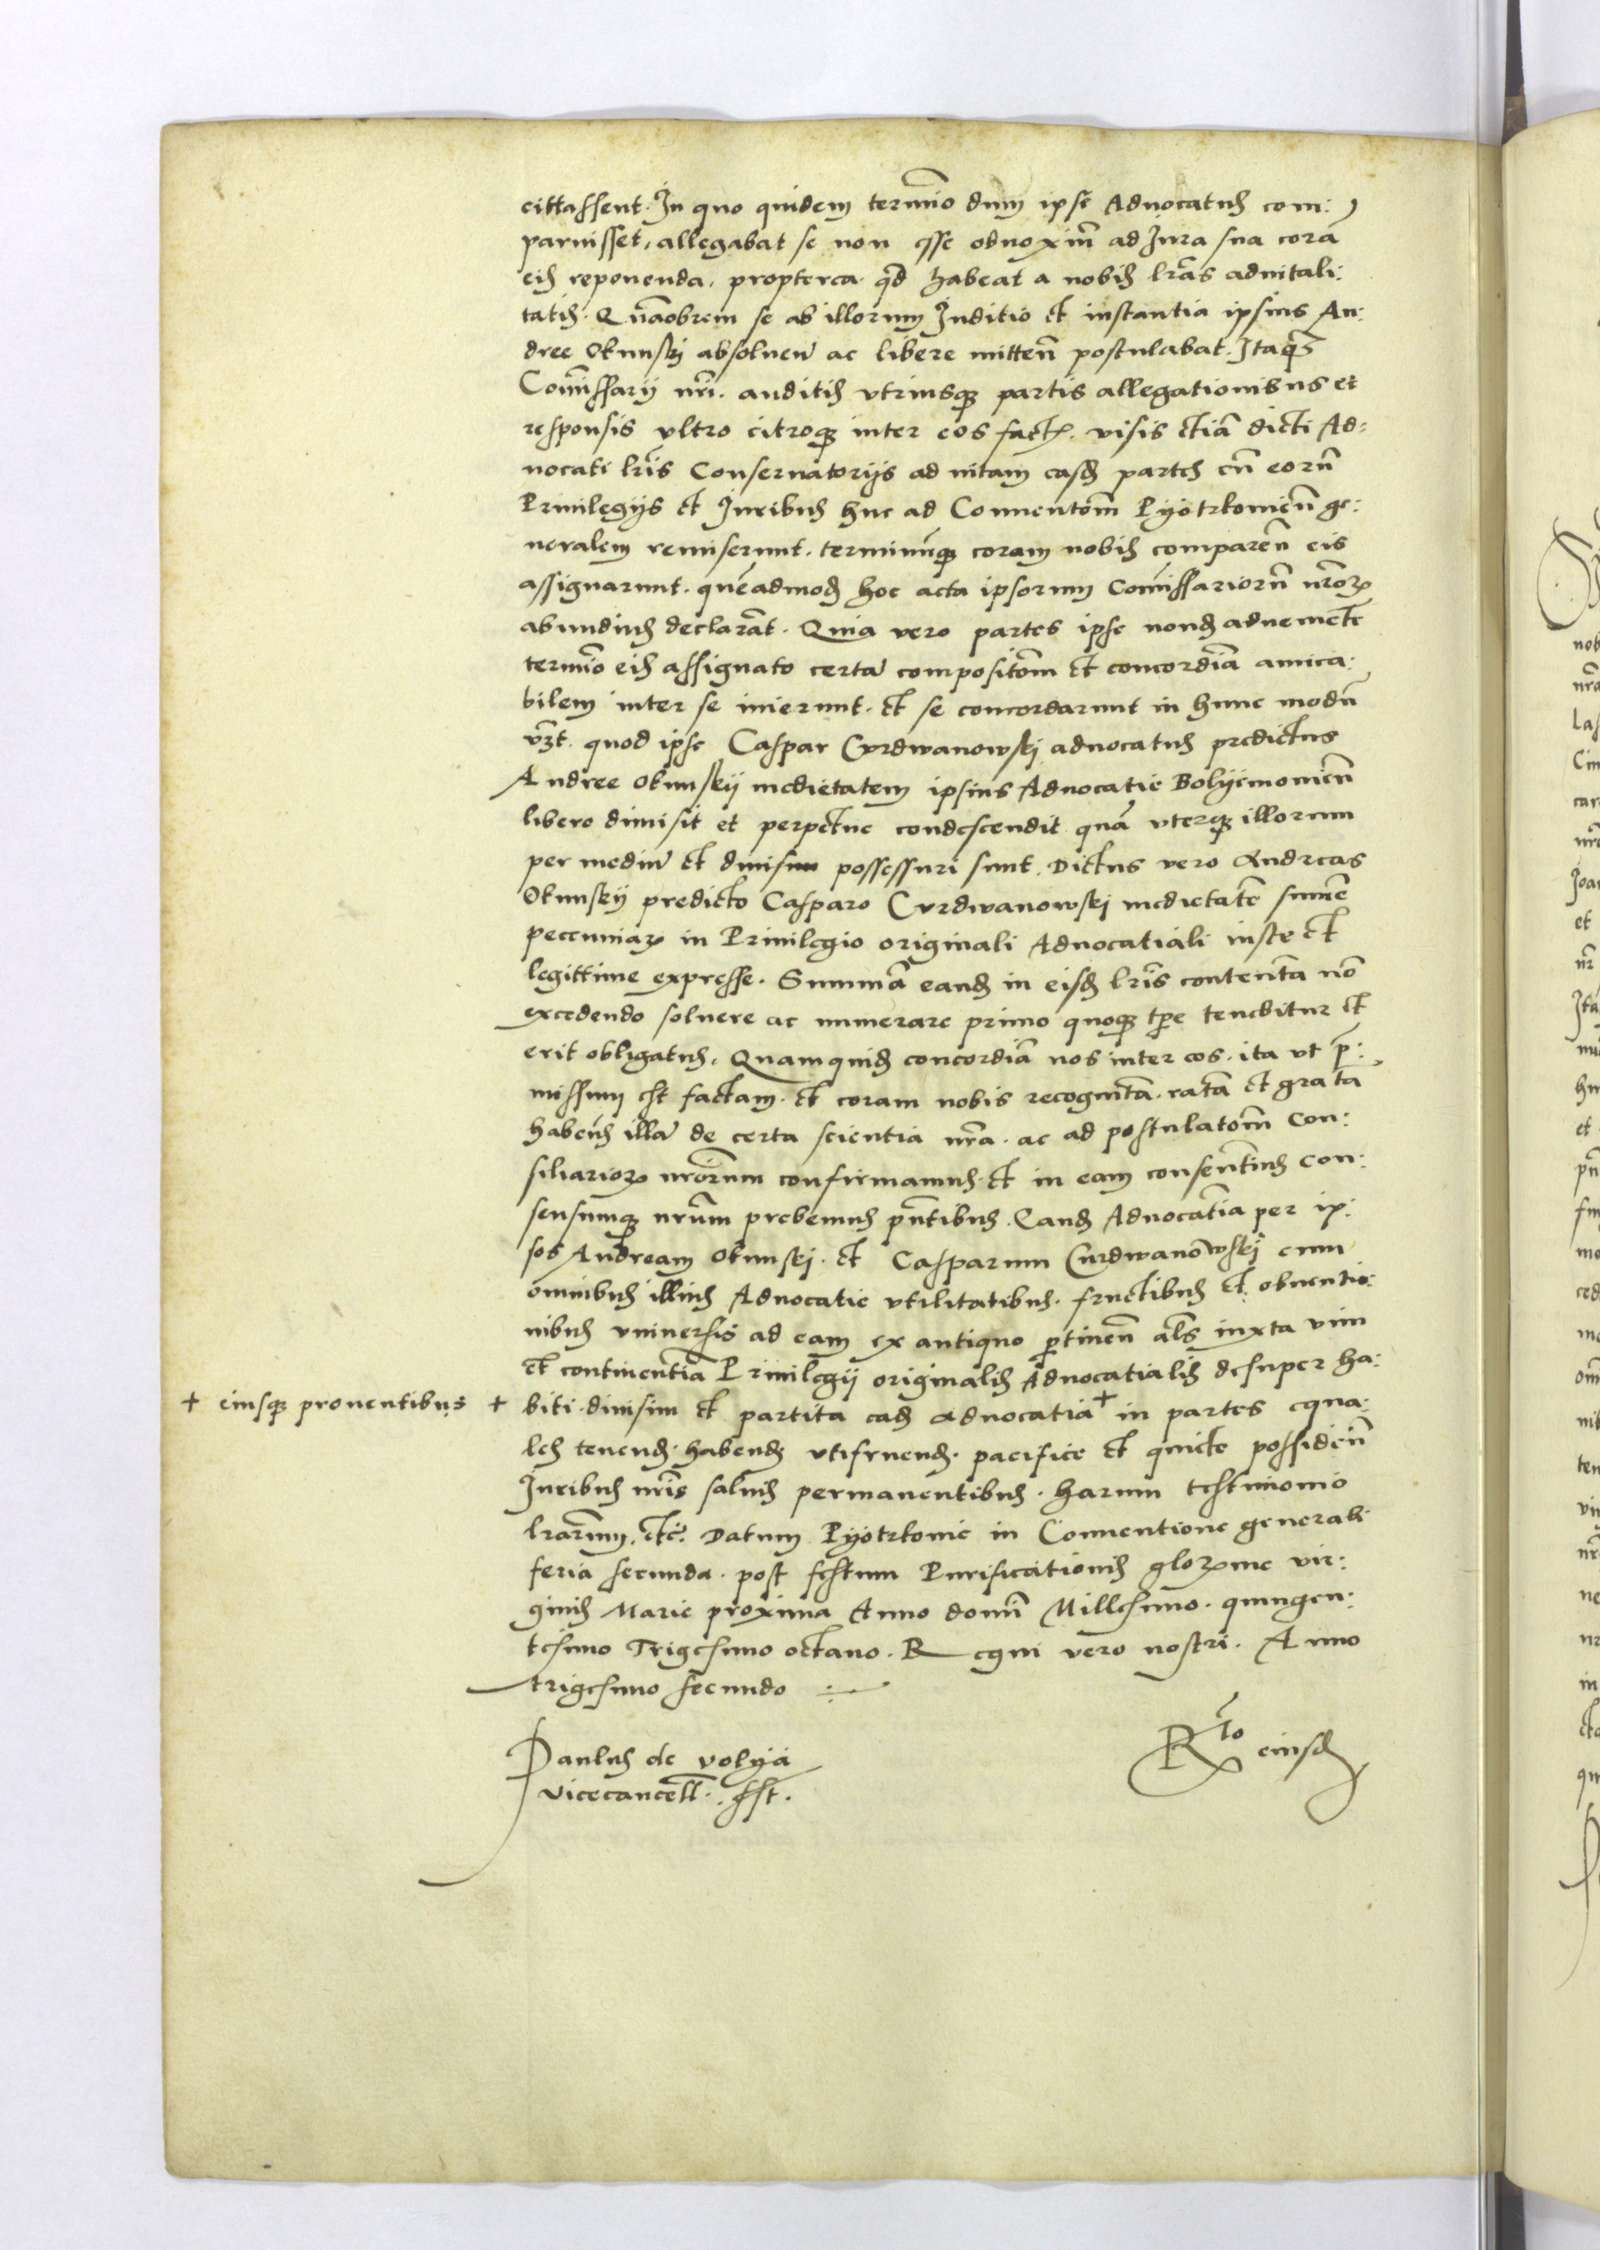 cittassent. In quo quidem termīo dum ipse Aduocatus com:
paruisset, allegabat se non esse obnoxiū ad Iura sua corā
eis reponenda, propterea qd habeat a nobis lrās aduitali:
tatis. Quāobrem se ab illorum Iuditio et instantia ipsius An:
dree Okunski absoluen̄ ac libere mitten̄ postulabat. Itaq
Com̄issarij nr̄i. auditis vtriusq partis allegationibus et
responsis vltro citroq inter eos fact. visis etiā dicti Ad:
uocati lr̄is Conseruatorijs ad uitam easd partes cū eorū
Priuilegijs et Iuribus huc ad Conuentōm Pyotrkouien̄ ge:
neralem remiserunt. terminūq coram nobis comparen̄ eis
assignarunt. quēadmod hoc acta ipsorum Com̄issariorū nr̄or
abundius declarāt. Quia vero partes ipse nond adueniēte
termīo eis assignato certā compositōm et concordiā amica:
bilem inter se inierunt. et se concordarunt in hunc modū
vzt. quod ipse Caspar Curdwanowski aduocatus predictus
Andree Okunskij medietatem ipsius Aduocatie Bolyemouien̄
libero dimisit et perpetue condescendit quā vterq illorum
per mediū et diuisim possessuri sunt. Dictus vero Andreas
Okunskij predicto Casparo Curdwanowski medietatē sum̄e
pecuniar in Priuilegio originali Aduocatiali iuste et
legittime expresse. Summā eand in eisd lr̄is contentā nō
excedendo soluere ac numerare primo quoq tp̄e tenebitur et
erit obligatus. Quamquid concordiā nos inter eos. ita vt p̄:
missum est factam. et coram nobis recognitā. ratā et gratā
haben̄s illā de certa scientia nr̄a. ac ad postulatōm Con:
siliarior nr̄orum confirmamus. et in eam consentimus con:
sensumq nr̄um prebemus pn̄tibus. Eand Aduocatiā per ip:
sos Andream Okunski. et Casparum Curdwanowski cum
omnibus illius Aduocatie vtilitatibus. fructibus et obuentio:
nibus vniuersis ad eam ex antiquo p̄tinen̄ al̄s iuxta vim
et continentiā Priuilegij originalis Aduocatialis desuper ha:
+ eiusq prouentibus + biti. diuisim et partita ead aduocatia + in partes equa:
les tenend. habend vtifruend. pacifice et quiete possiden̄
Iuribus nr̄is saluis permanentibus. Harum testimonio
lrarum. etc. Datum Pyotrkouie in Conuentione generali
feria secunda. post festum Purificationis glorme vir:
ginis Marie proxima Anno domī Millesimo. quingen:
tesimo Trigesimo octauo. Regni vero nostri. Anno
trigesimo secundo
Paulus de volya
vicecancell. sst.
Rto eiusd